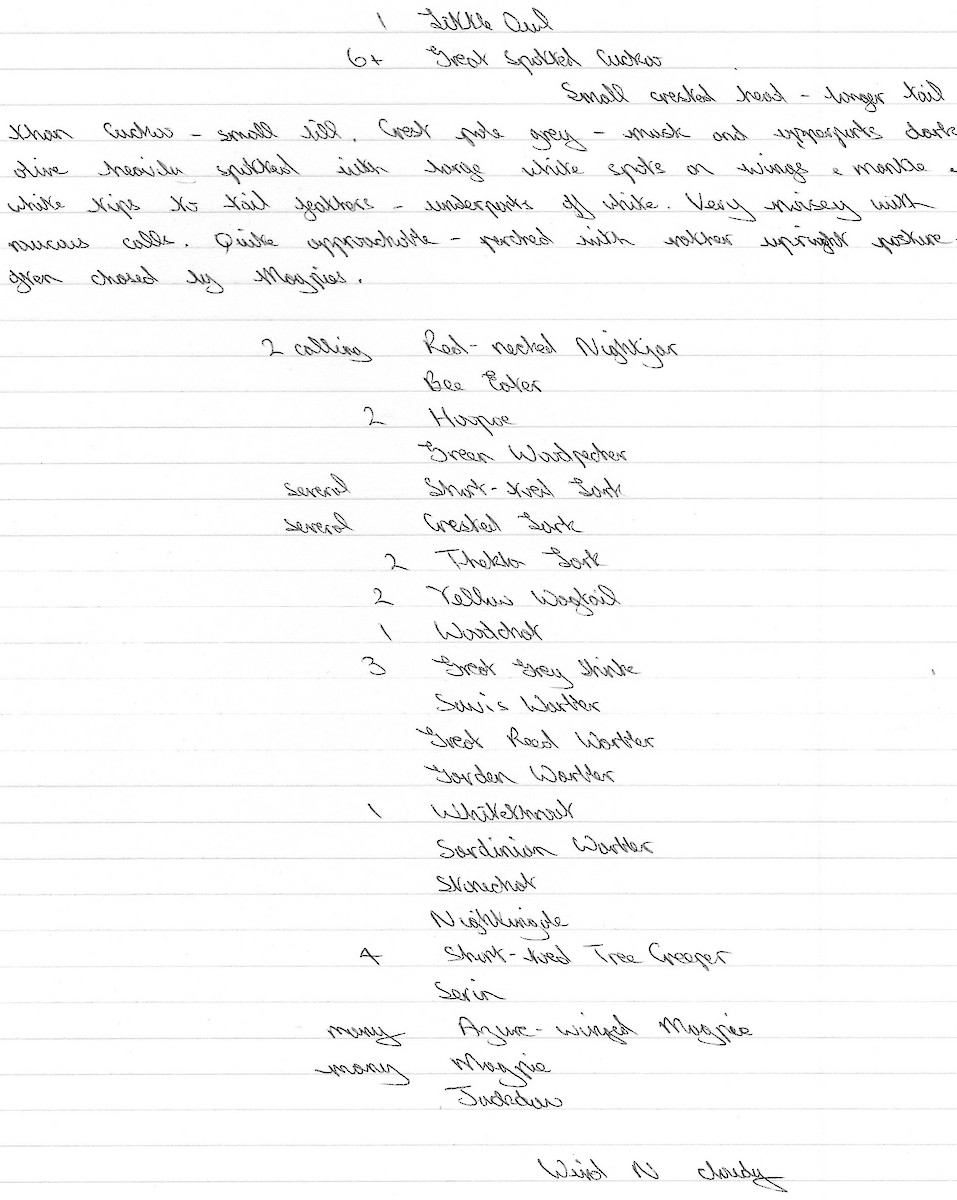 1 Little Owl
6+ Great Spotted Cuckoo
Small crested head - longer tail
than Cuckoo - small bill. Crest pale grey - mask and upperparts dark
olive heavily spotted with large white spots on wings & mantle.
white tips to tail feathers - underparts off white. Very noisey with
raucous calls. Quite approachable - perched with rather upright posture.
Often chased by Magpies.
2 calling Red-necked Nightjar
Bee Eater
2 Hoopoe
Green Woodpecker
several Short-toed Lark
several Crested Lark
2 Thekla Lark
2 Yellow Wagtail
1 Woodchat
3 Great Grey Shrike
Savi's Warbler
Great Reed Warbler
Garden Warbler
1 Whitethroat
Sardinian Warbler
Stonechat
Nightingale
4 Short-toed Tree Creeper
Serin
many Azure-winged Magpie
many Magpie
Jackdaw
Wind N cloudy